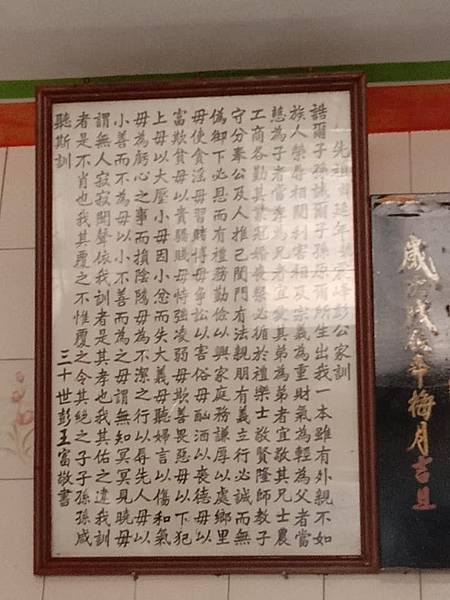 先祖延年宏峰彭公家訓
誥爾子孫誡爾子孫原爾所生出我一本雖有外親不如
族人榮辱相關利害相及宗義為重財氣為輕為父者當
慈為子者當孝為兄者宜愛其弟為弟者宜敬其兄士農
工商各勤其業冠婚喪祭必循於禮樂士敬賢隆師教子
守分奉公及人推己閨門有法親朋有義立行必誠而無
偽御下必恩而有禮務勤儉以興家庭務謙厚以處鄉里
毋使貪淫毋習賭博毋爭訟以害俗毋酗酒以喪德毋以
富欺貧毋以貴驕賤毋恃強凌弱毋欺善畏惡毋以下犯
上毋以大壓小毋因小忿而失大義毋聽婦言以傷和氣
毋為虧心之事而損陰騭毋為不潔之行以辱先人毋以
小善而不為毋以小不善而為之毋謂無知冥冥見曉毋
謂無人寂寂聞聲依我訓者是其孝也我其佑之違我訓
者是不肖也我其覆之不惟覆之令其絕之子子孫孫咸
聽斯訓
三十世彭玉富敬書
歲年梅月吉旦